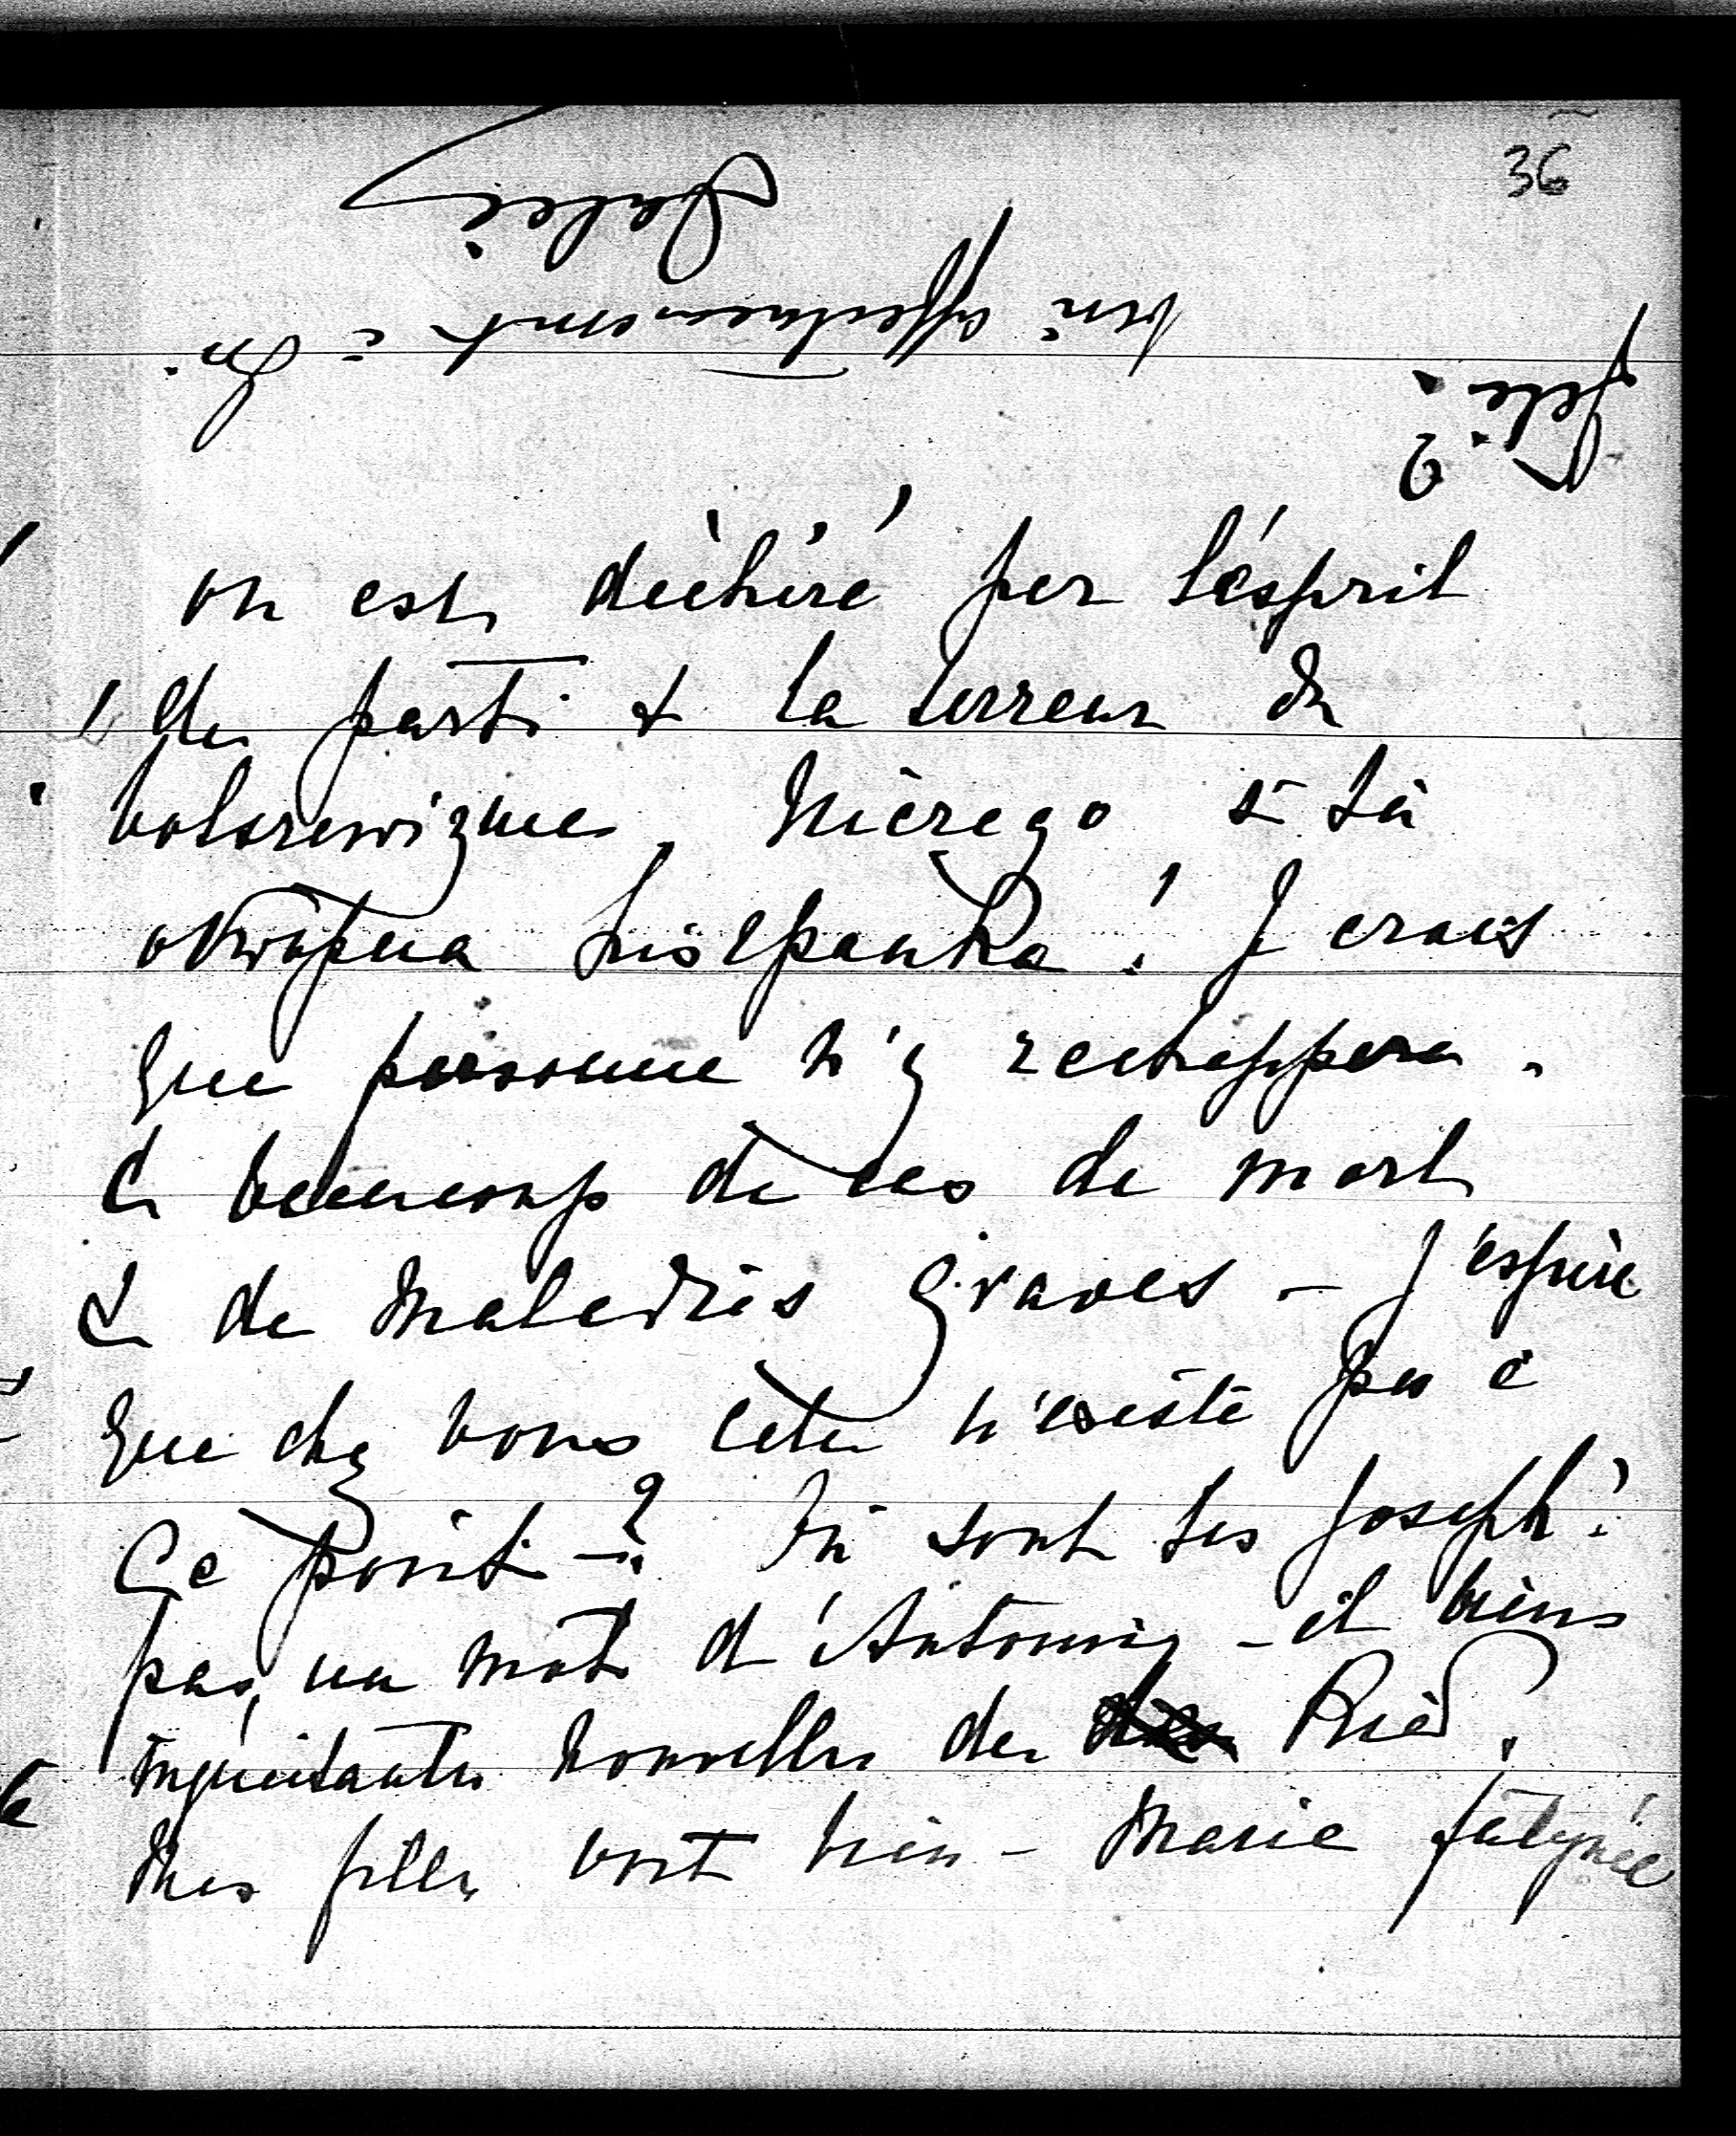 36
félié?
bien affectueusement à Toi.
on est déchiré par l'ésprit
de parti & la terreur du
bolszewizme. Niczego à la
okropna hiszpanka! J crois
que personne n'y rechappera.
beaucoup de cas de mort
& de maladies graves - J'espère
que chez vous cela n'existe pas à
ce point -? Où sont les Joseph?
pas un mot d'Antoniny - et bien
inquiétantes nouvelles de Ried.
Mes filles vont bien - Marie fatiguée